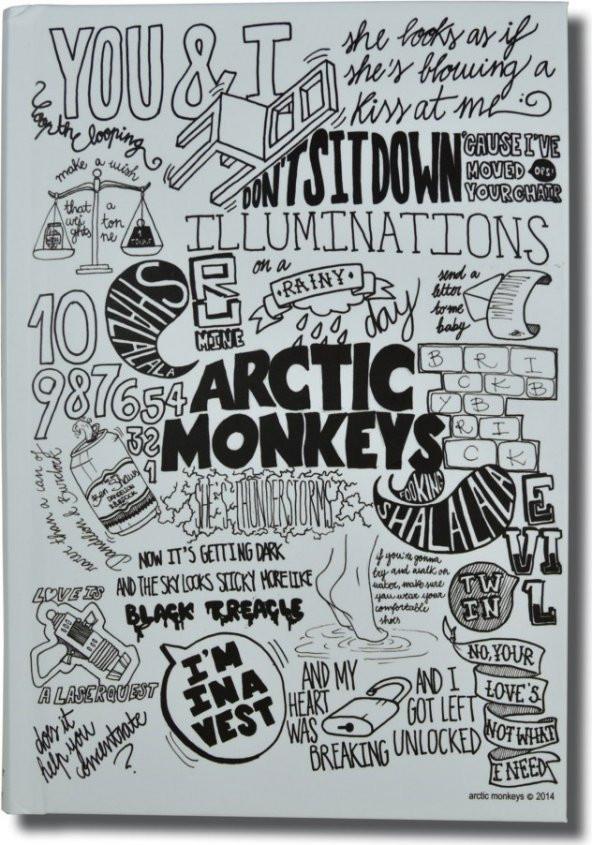 YOU & I
she looks as if
she's blowing a
kiss at me
loop the looping
DON'T SIT DOWN
'CAUSE I'VE
MOVED OPS!
YOUR CHAIR
make a wish
that
wei
ghts
a
ton
ne
ILLUMINATIONS
SHALALALA
R U
MINE
on a
RAINY
day
send a
letter
to me
baby
10
987654
32
1
ARCTIC
MONKEYS
BRI
CKB
YB
RI
CK
sweeter than a can of
Dandelion & Burdock
SHE'S THUNDERSTORMS
FOOKING
SHALALALA
EVIL
TW
IN
NOW IT'S GETTING DARK
AND THE SKY LOOKS STICKY MORE LIKE
BLACK TREACLE
if you're gonna
try and walk on
water, make sure
you wear your
comfortable
shoes
LOVE IS
A LASERQUEST
does it
help you
concentrate
?
I'M
IN A
VEST
AND MY
HEART
WAS
BREAKING
AND I
GOT LEFT
UNLOCKED
NO, YOUR
LOVE'S
NOT WHAT
I NEED
arctic monkeys © 2014